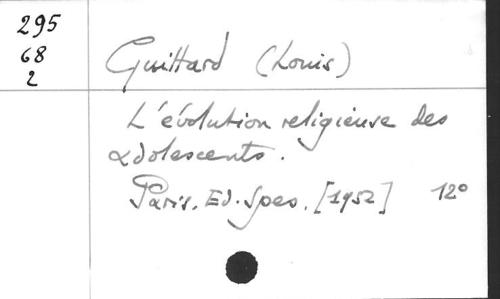 295
68
2
Guittard (Louis)
L'évolution religieuse des
adolescents.
Paris. Ed. Spes. [1952] 12°